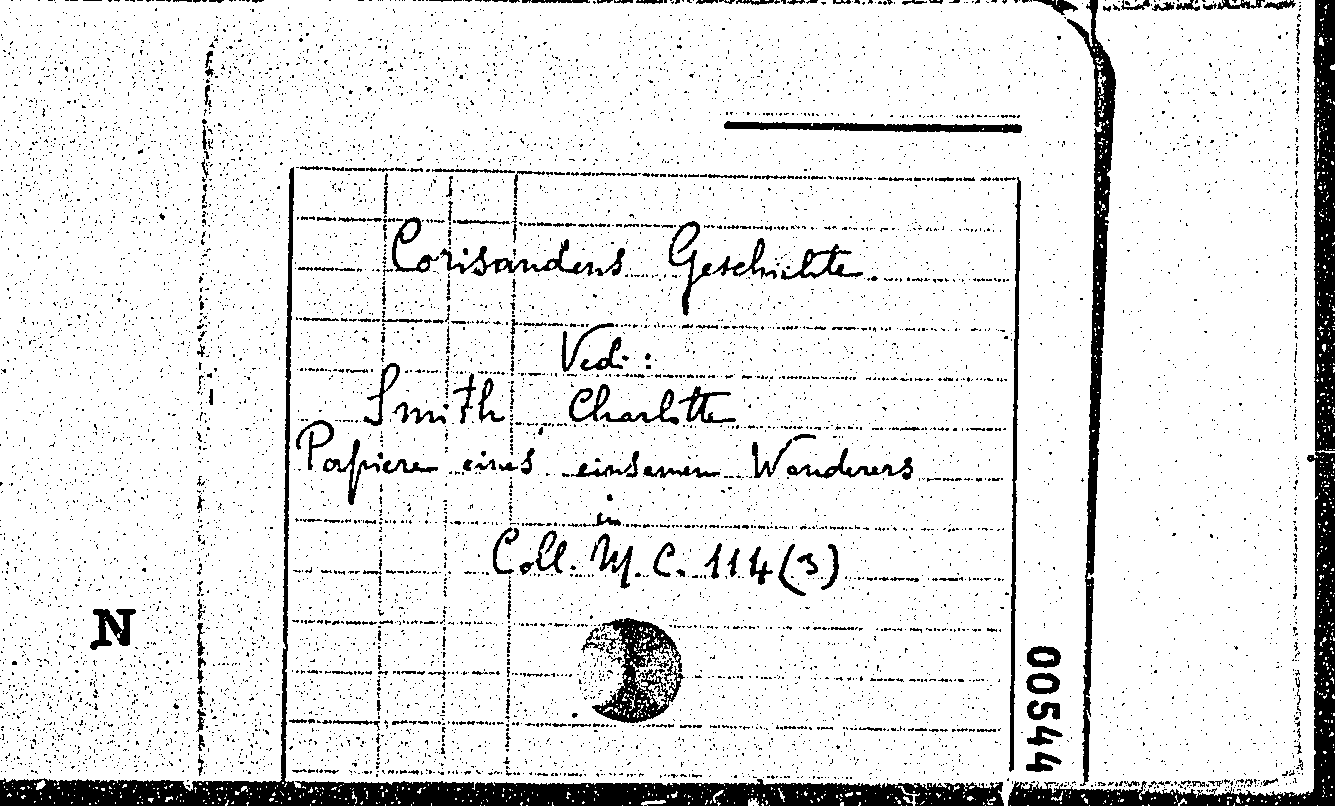 Corisandens Geschichte.
Vedi:
Smith, Charlotte
Papiere eines einsamen Wanderers
in
Coll. M. C. 114(3)
N
00544